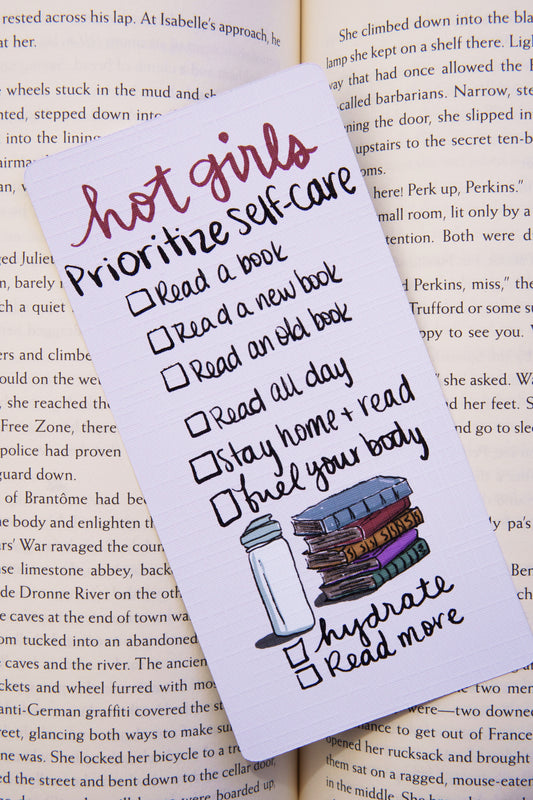 rested across his lap. At Isabelle's approach, he
at her.
wheels stuck in the mud and
stepped down into
into the lining
Juliet
barely
ch a quiet
ers and climbe
ould on the we
she reached the
Free Zone, there
police had proven
guard down.
of Brantôme had be
he body and enlighten th
ars' War ravaged the coun
se limestone abbey, back
de Dronne River on the oth
e caves at the end of town wa
om tucked into an abandoned
caves and the river. The ancien
ckets and wheel furred with mos
anti-German graffiti covered the st
treet, glancing both ways to make su
one was. She locked her bicycle to a tr
ed the street and bent down to the cellar door,
were boarded up,
hot girls
Prioritize Self-Care
Read a book
Read a new book
Read an old book
Read all day
Stay home + read
fuel your body
hydrate
Read more
She climbed down into the bla
lamp she kept on a shelf there. Ligh
way that had once allowed the
-called barbarians. Narrow, ste
ning the door, she slipped in
upstairs to the secret ten-b
oms.
here! Perk up, Perkins."
mall room, lit only by a
tention. Both were d
Perkins, miss," the
Trufford or some su
ppy to see you.
she asked. Wa
nd her feet. S
and go to slee
ly pa's
Ben
two men
were—two downed
chance to get out of France
opened her rucksack and brought
them sat on a ragged, mouse-eaten
in the middle. She